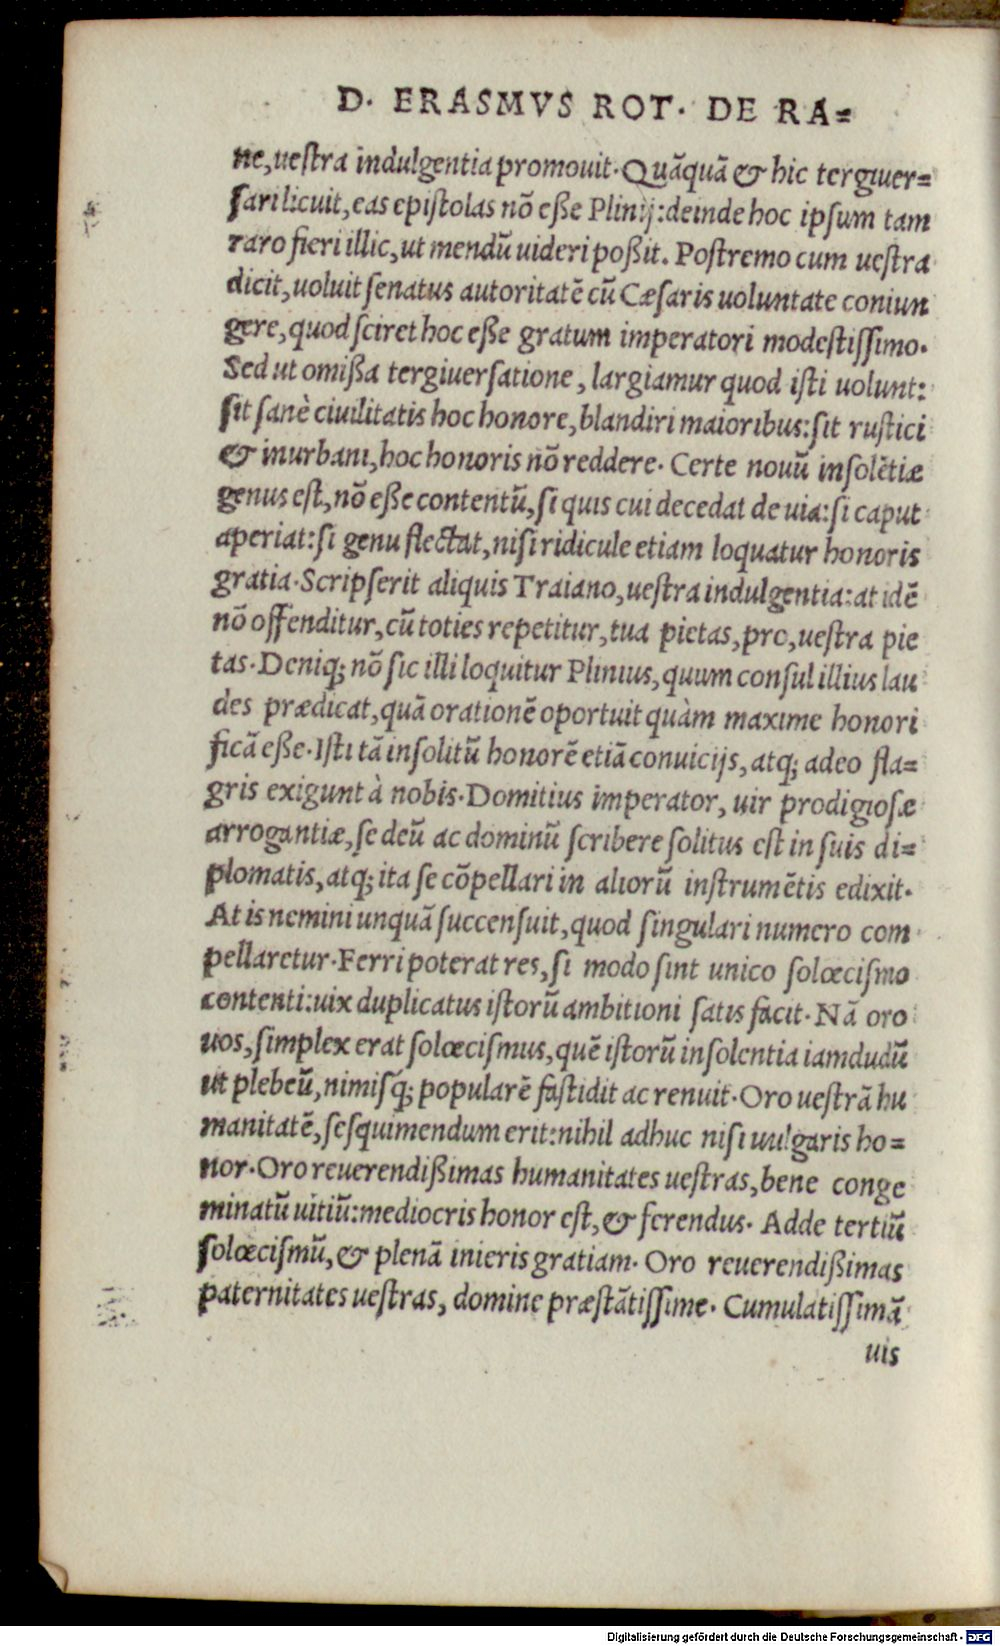 D. ERASMVS ROT. DE RA=
ne, ueſtra indulgentia promouit. Quāquā & hic tergiuer=
ſari licuit, eas epiſtolas nō eße Plinij: deinde hoc ipſum tam
raro fieri illic, ut mendū uideri poßit. Poſtremo cum ueſtra
dicit, uoluit ſenatus autoritatē cū Cæſaris uoluntate coniun
gere, quod ſciret hoc eße gratum imperatori modeſtiſſimo.
Sed ut omißa tergiuerſatione, largiamur quod iſti uolunt:
ſit ſanè ciuilitatis hoc honore, blandiri maioribus: ſit ruſtici
& inurbani, hoc honoris nō reddere. Certe nouū inſolētiæ
genus eſt, nō eße contentū, ſi quis cui decedat de uia: ſi caput
aperiat: ſi genu flectat, niſi ridicule etiam loquatur honoris
gratia. Scripſerit aliquis Traiano, ueſtra indulgentia: at idē
nō offenditur, cū toties repetitur, tua pietas, pro, ueſtra pie
tas. Deniq; nō ſic illi loquitur Plinius, quum conſul illius lau
des prædicat, quā orationē oportuit quàm maxime honori
ficā eße. Iſti tā inſolitū honorē etiā conuicijs, atq; adeo fla=
gris exigunt à nobis. Domitius imperator, uir prodigioſæ
arrogantiæ, ſe deū ac dominū ſcribere ſolitus eſt in ſuis di=
plomatis, atq; ita ſe cōpellari in aliorū inſtrumētis edixit.
At is nemini unquā ſuccenſuit, quod ſingulari numero com
pellaretur. Ferri poterat res, ſi modo ſint unico ſolœciſmo
contenti: uix duplicatus iſtorū ambitioni ſatis facit. Nā oro
uos, ſimplex erat ſolœciſmus, quē iſtorū inſolentia iamdudū
ut plebeū, nimiſq; popularē faſtidit ac renuit. Oro ueſtrā hu
manitatē, ſeſquimendum erit: nihil adhuc niſi uulgaris ho=
nor. Oro reuerendißimas humanitates ueſtras, bene conge
minatū uitiū: mediocris honor eſt, & ferendus. Adde tertiū
ſolœciſmū, & plenā inieris gratiam. Oro reuerendißimas
paternitates ueſtras, domine præſtātiſſime. Cumulatiſſimā
uis
Digitalisierung gefördert durch die Deutsche Forschungsgemeinschaft - DFG